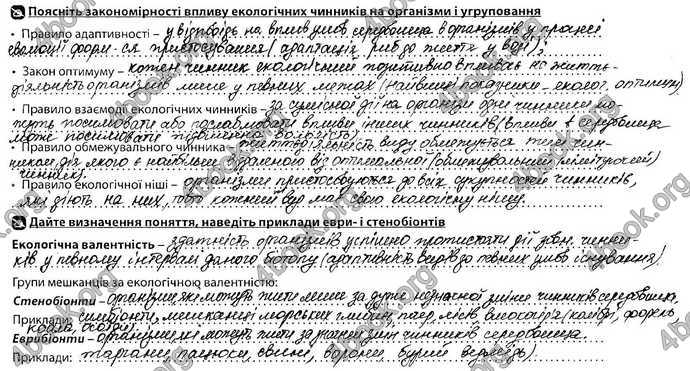 Поясніть закономірності впливу екологічних чинників на організми і угруповання
• Правило адаптивності – у відповідь на вплив умов середовища в організмів у процесі
еволюції форм-ся пристосування (адаптація риб до життя у воді);
• Закон оптимуму – кожен чинник екологічний позитивно впливає на життє-
діяльність організмів лише у певних межах (найвищі показники – еколог. оптимум)
• Правило взаємодії екологічних чинників – за сумісної дії на організм одні чинники мо-
жуть посилювати або послаблювати вплив інших чинників (вплив t середовища
може посилювати підвищена вологість).
• Правило обмежувального чинника – життєдіяльність виду обмежується тим чин-
ником, дія якого є найбільш віддаленою від оптимальної (обмежувальний (лімітуючий)
чинник).
• Правило екологічної ніші – організми пристосовуються до всіх сукупностей чинників,
які діють на них, тобто кожний вид має свою екологічну нішу.
Дайте визначення поняття, наведіть приклади еври- і стенобіонтів
Екологічна валентність – здатність організмів успішно протистояти дії різн. чинни-
ків у певному інтервалі даного біотопу (адаптивність видів до певних умов існування)
Групи мешканців за екологічною валентністю:
Стенобіонти – організми, які можуть жити лише за дуже незначної зміни чинників середовища.
Приклади: симбіонти, мешканці морських глибин, печер, лісів високогір'я (колібрі, форель,
коала,
Еврибіонти – організми, які можуть жити за значної зміни чинників середовища.
Приклади: таргани, пацюки, свині, ворони, бурий ведмідь).
4book.org